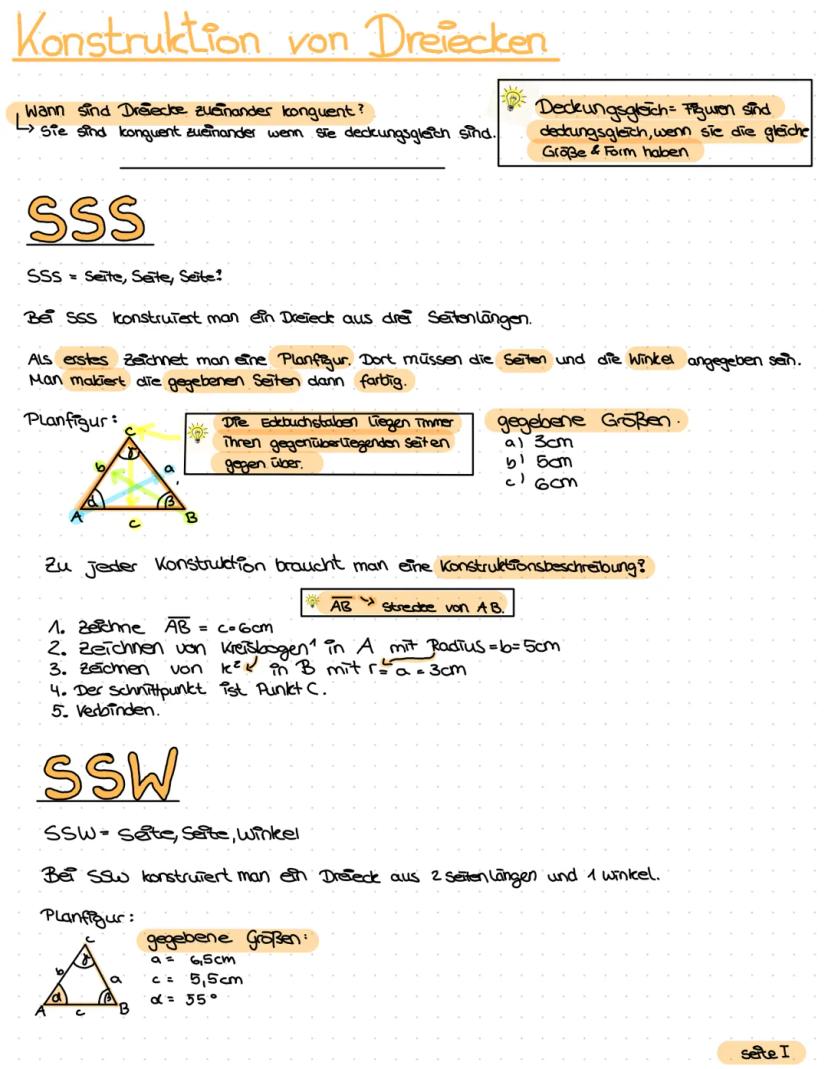 Konstruktion von Dreiecken
Wann sind Dreiecke zueinander konguent?
↳ Sie sind konguent zueinander wenn sie deckungsgleich sind.
Deckungsgleich = Figuren sind
deckungsgleich, wenn sie die gleiche
Größe & Form haben
SSS
SSS = Seite, Seite, Seite!
Bei SSS konstruiert man ein Dreieck aus drei Seitenlängen.
Als erstes zeichnet man eine Planfigur. Dort müssen die Seiten und die Winkel angegeben sein.
Man makiert die gegebenen Seiten dann farbig.
Planfigur:
C
γ
b
a
α
β
A
c
B
Die Eckbuchstaben liegen immer
ihren gegenüberliegenden Seiten
gegen über.
gegebene Größen.
a) 3cm
b) 5cm
c) 6cm
Zu jeder Konstruktion braucht man eine Konstruktionsbeschreibung!
AB → Strecke von AB.
1. Zeichne AB = c=6cm
2. Zeichnen von Kreisbogen¹ in A mit Radius =b=5cm
3. Zeichnen von k² in B mit r= a = 3cm
4. Der Schnittpunkt ist Punkt C.
5. Verbinden.
SSW
SSW = Seite, Seite, Winkel
Bei SSW konstruiert man ein Dreieck aus 2 Seitenlängen und 1 Winkel.
Planfigur:
C
γ
b
a
α
β
A
c
B
gegebene Größen:
a = 6,5cm
c = 5,5cm
α = 55°
Seite I